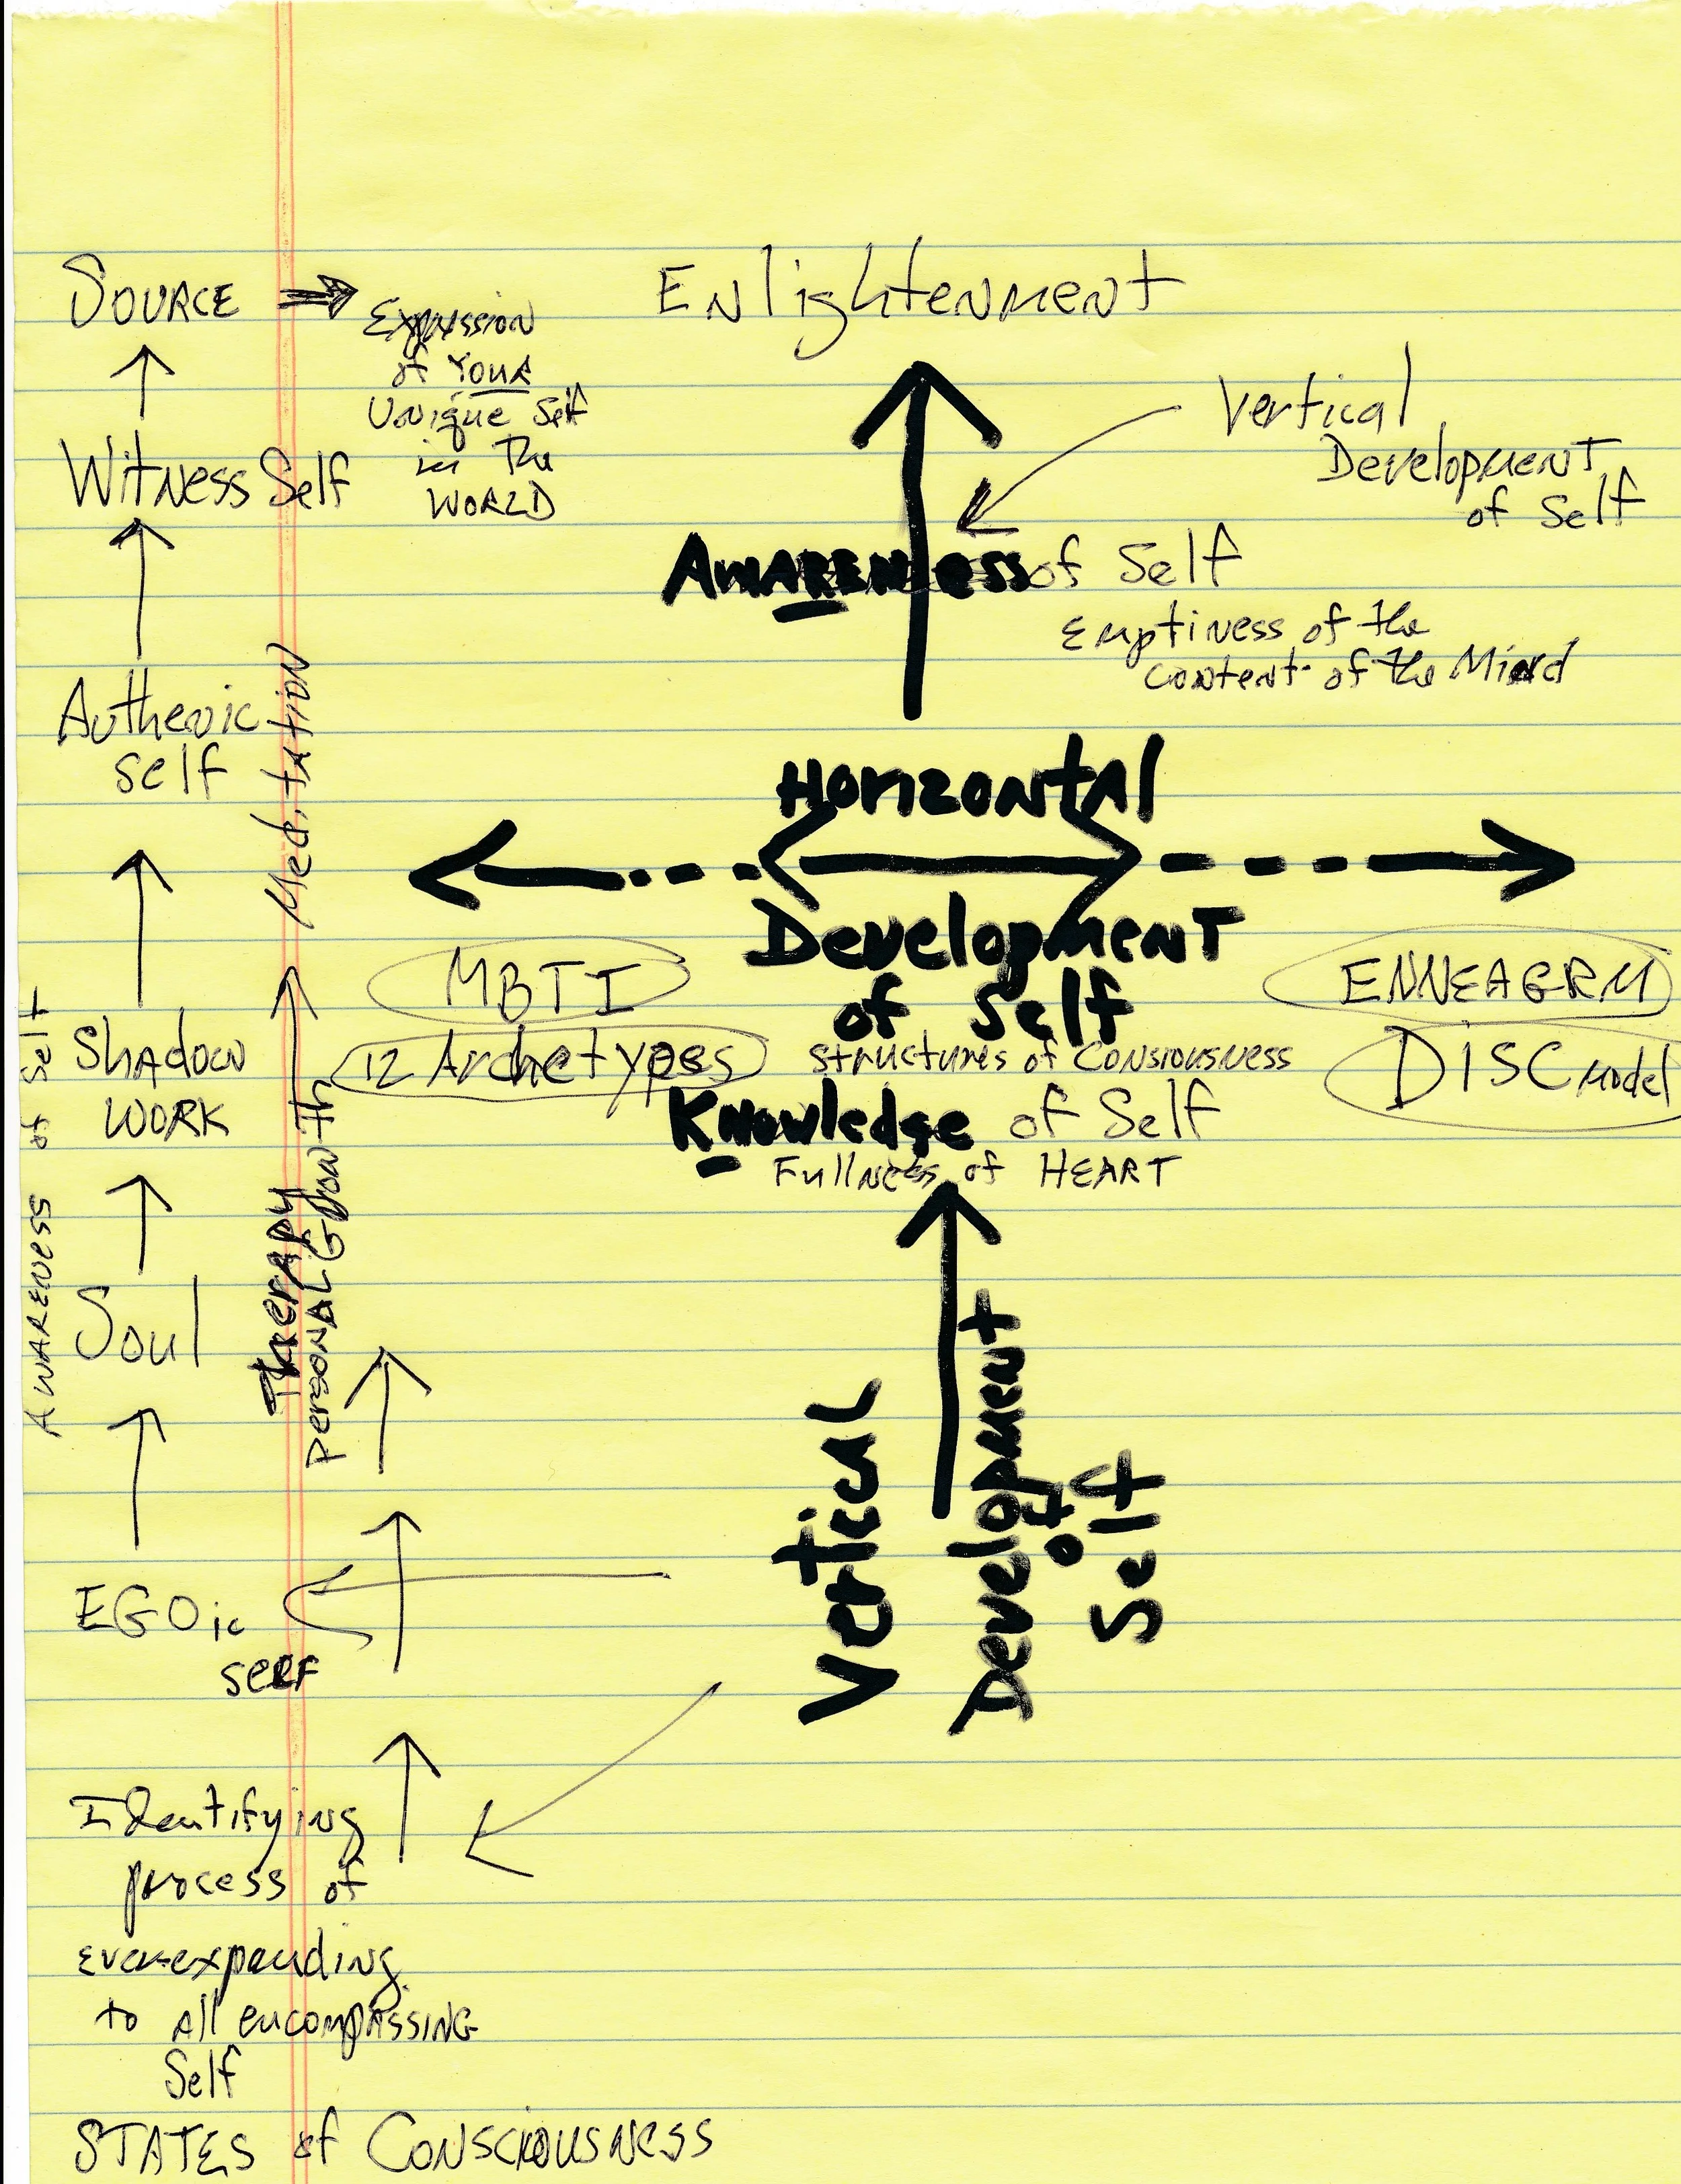 SOURCE
Expression
of YOUR
Unique Self
in The
WORLD
Enlightenment
Vertical
Development
of Self
Witness Self
AWARENess of Self
Emptiness of the
content of the Mind
Authenic
self
Meditation
Horizontal
Development
of Self
MBTI
12 Archetypes
ENNEAGRM
DISC Model
Structures of Consiousness
Knowledge of Self
Fullness of HEART
Awareness of Self
Shadow
WORK
Therapy
Personal Growth
Soul
Vertical
Development
of
Self
EGOic
self
Identifying
process of
ever-expanding
to All encompASSING
Self
STATES of Consciousness